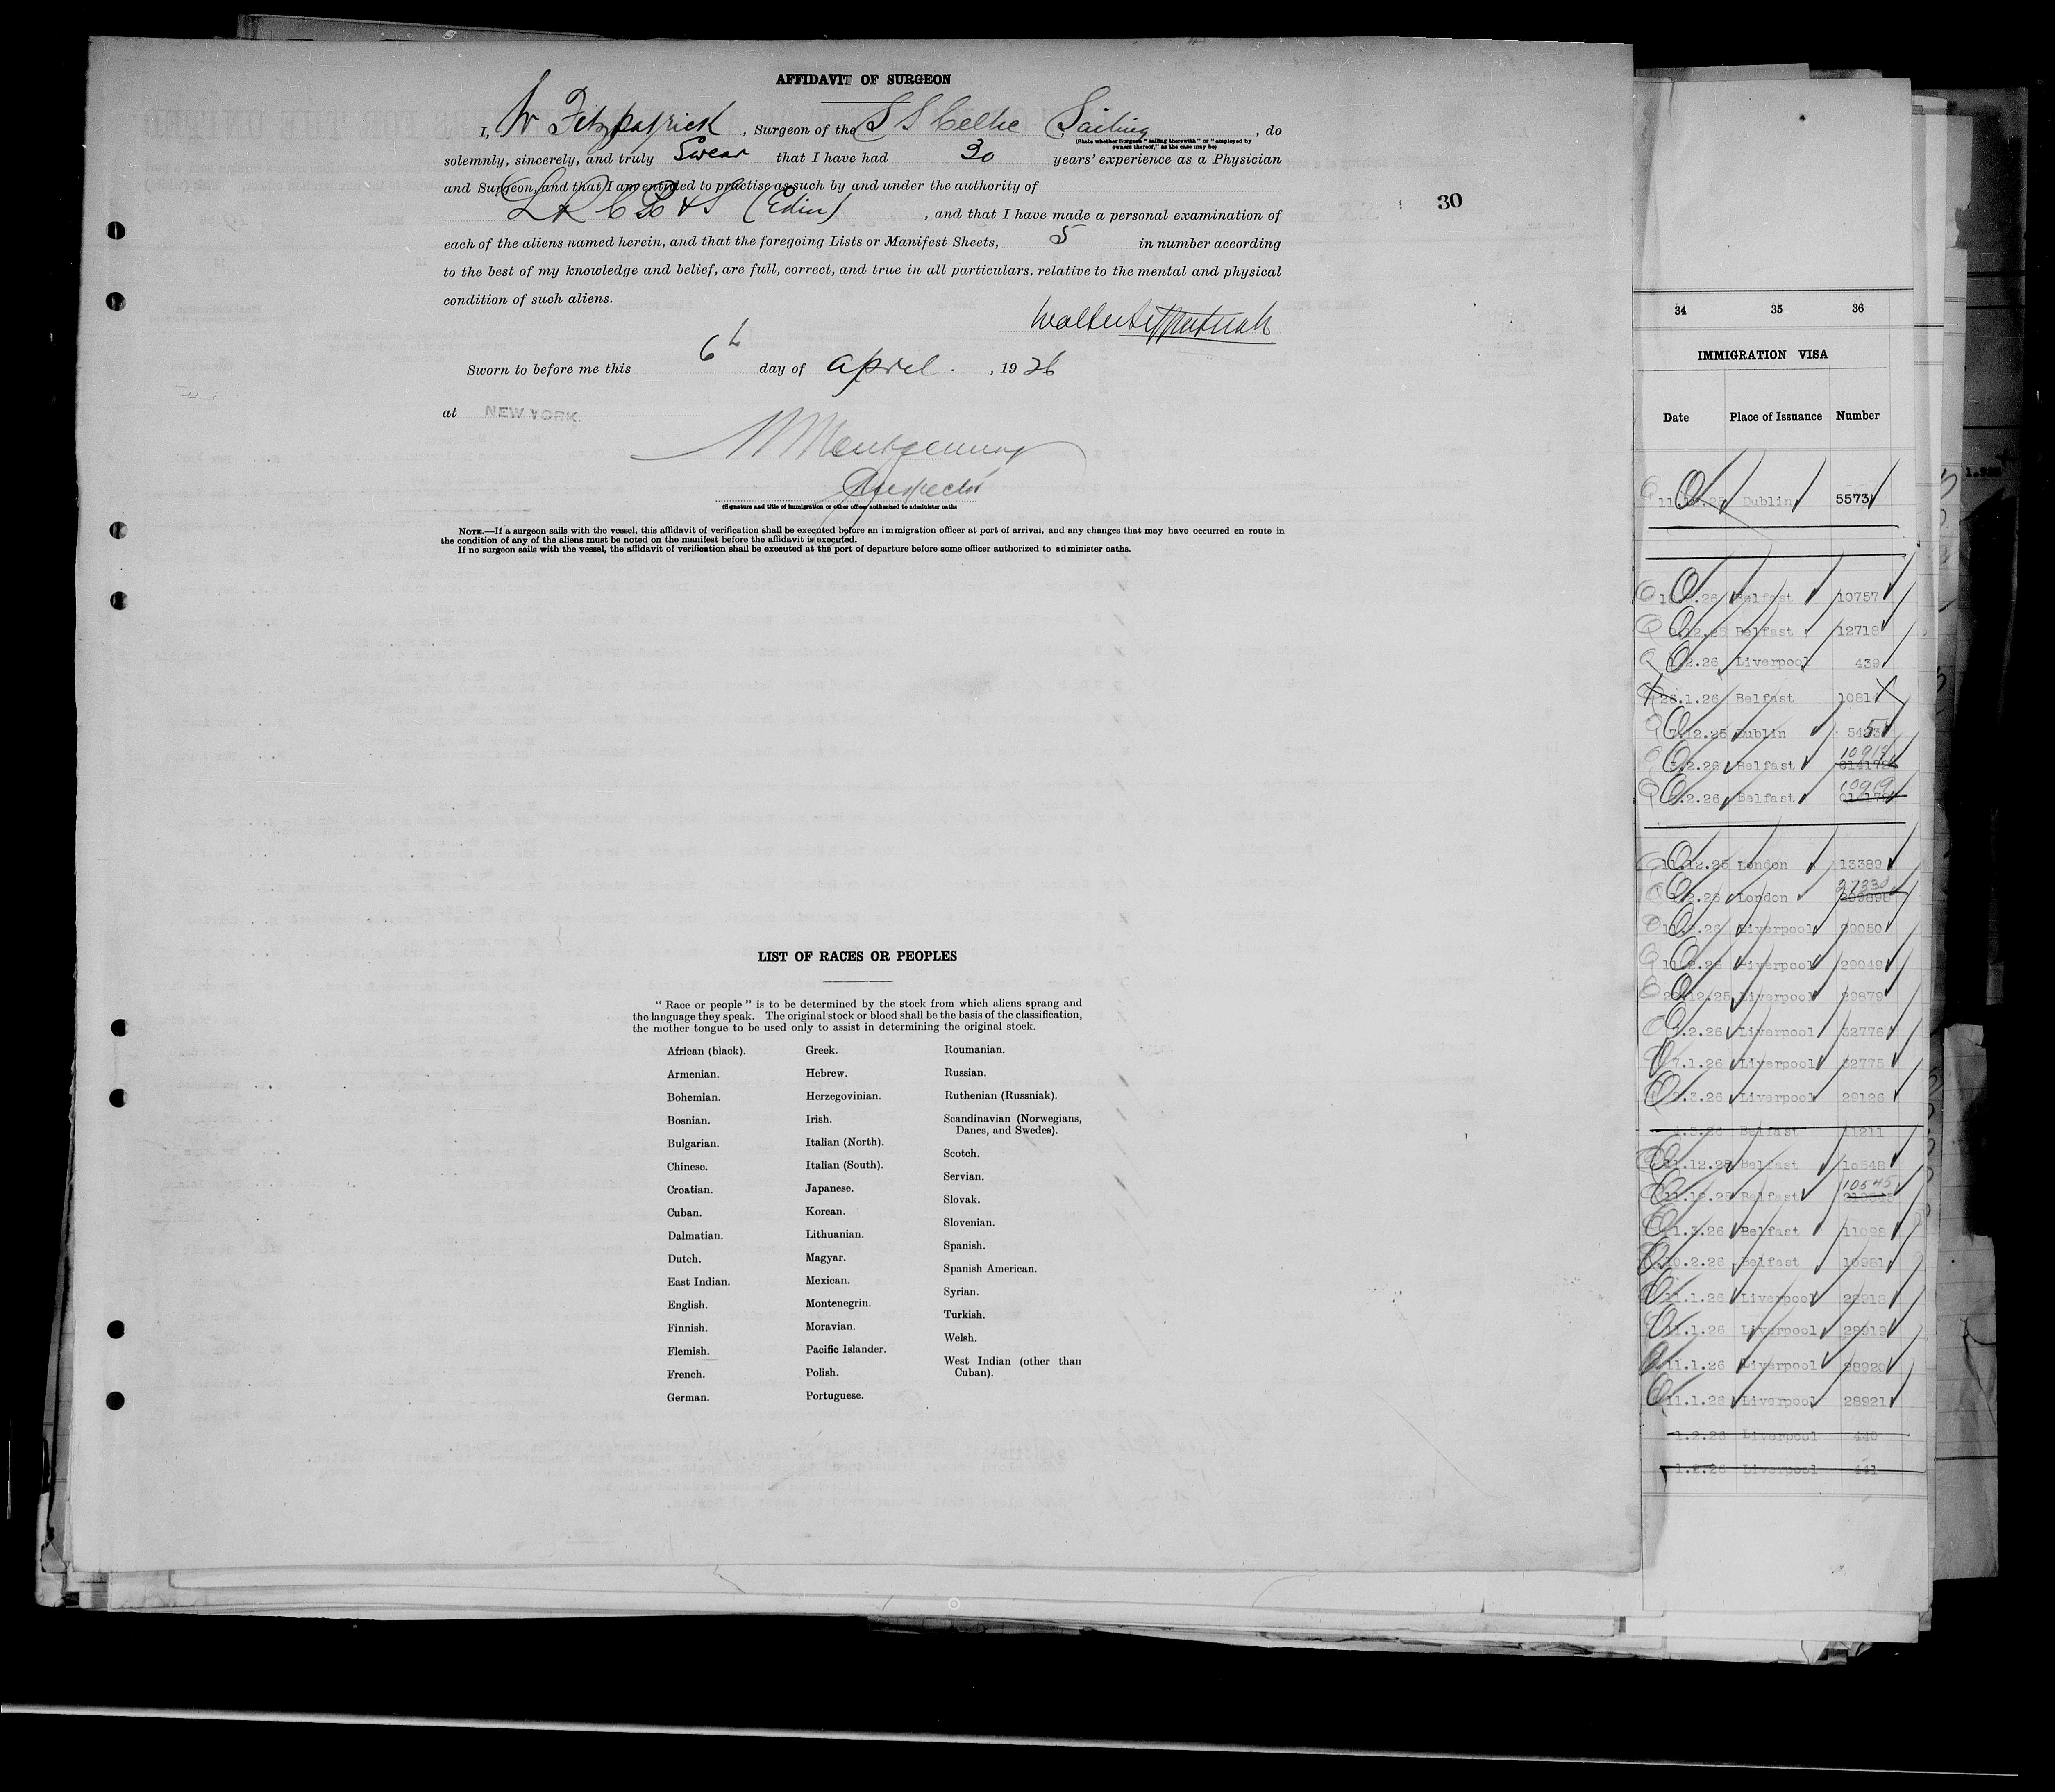 AFFIDAVIT OF SURGEON
I, W Fitzpatrick, Surgeon of the S S Celtic Sailing, do
(State whether Surgeon "sailing therewith" or "employed by
owners thereof," as the case may be)
solemnly, sincerely, and truly Swear that I have had 30 years' experience as a Physician
and Surgeon, and that I am entitled to practise as such by and under the authority of
L R C P & S (Edin), and that I have made a personal examination of
each of the aliens named herein, and that the foregoing Lists or Manifest Sheets, 5 in number according
to the best of my knowledge and belief, are full, correct, and true in all particulars, relative to the mental and physical
condition of such aliens.
Walter Fitzpatrick
Sworn to before me this 6th day of April, 1926
at NEW YORK.
Montgomery
Inspector
(Signature and title of immigration or other officer authorized to administer oaths
NOTE.—If a surgeon sails with the vessel, this affidavit of verification shall be executed before an immigration officer at port of arrival, and any changes that may have occurred en route in
the condition of any of the aliens must be noted on the manifest before the affidavit is executed.
If no surgeon sails with the vessel, the affidavit of verification shall be executed at the port of departure before some officer authorized to administer oaths.
30
LIST OF RACES OR PEOPLES
"Race or people" is to be determined by the stock from which aliens sprang and
the language they speak. The original stock or blood shall be the basis of the classification,
the mother tongue to be used only to assist in determining the original stock.
African (black).
Armenian.
Bohemian.
Bosnian.
Bulgarian.
Chinese.
Croatian.
Cuban.
Dalmatian.
Dutch.
East Indian.
English.
Finnish.
Flemish.
French.
German.
Greek.
Hebrew.
Herzegovinian.
Irish.
Italian (North).
Italian (South).
Japanese.
Korean.
Lithuanian.
Magyar.
Mexican.
Montenegrin.
Moravian.
Pacific Islander.
Polish.
Portuguese.
Roumanian.
Russian.
Ruthenian (Russniak).
Scandinavian (Norwegians,
Danes, and Swedes).
Scotch.
Servian.
Slovak.
Slovenian.
Spanish.
Spanish American.
Syrian.
Turkish.
Welsh.
West Indian (other than
Cuban).
34 35 36
IMMIGRATION VISA
Date Place of Issuance Number
Dublin 5573
Belfast 10757
Belfast 12718
Liverpool 439
26.1.26 Belfast 1081
Dublin
Belfast 10918
Belfast 10919
11.12.25 London 13389
London
Liverpool 29050
Liverpool 29049
Liverpool 29879
Liverpool 32776
7.1.26 Liverpool 32775
Liverpool 29126
Belfast 11211
11.12.25 Belfast 10548
11.12.25 Belfast 10545
1.3.26 Belfast 11098
10.2.26 Belfast 10981
11.1.26 Liverpool 28918
11.1.26 Liverpool 28919
11.1.26 Liverpool 28920
11.1.26 Liverpool 28921
1.2.26 Liverpool 440
1.2.26 Liverpool 441